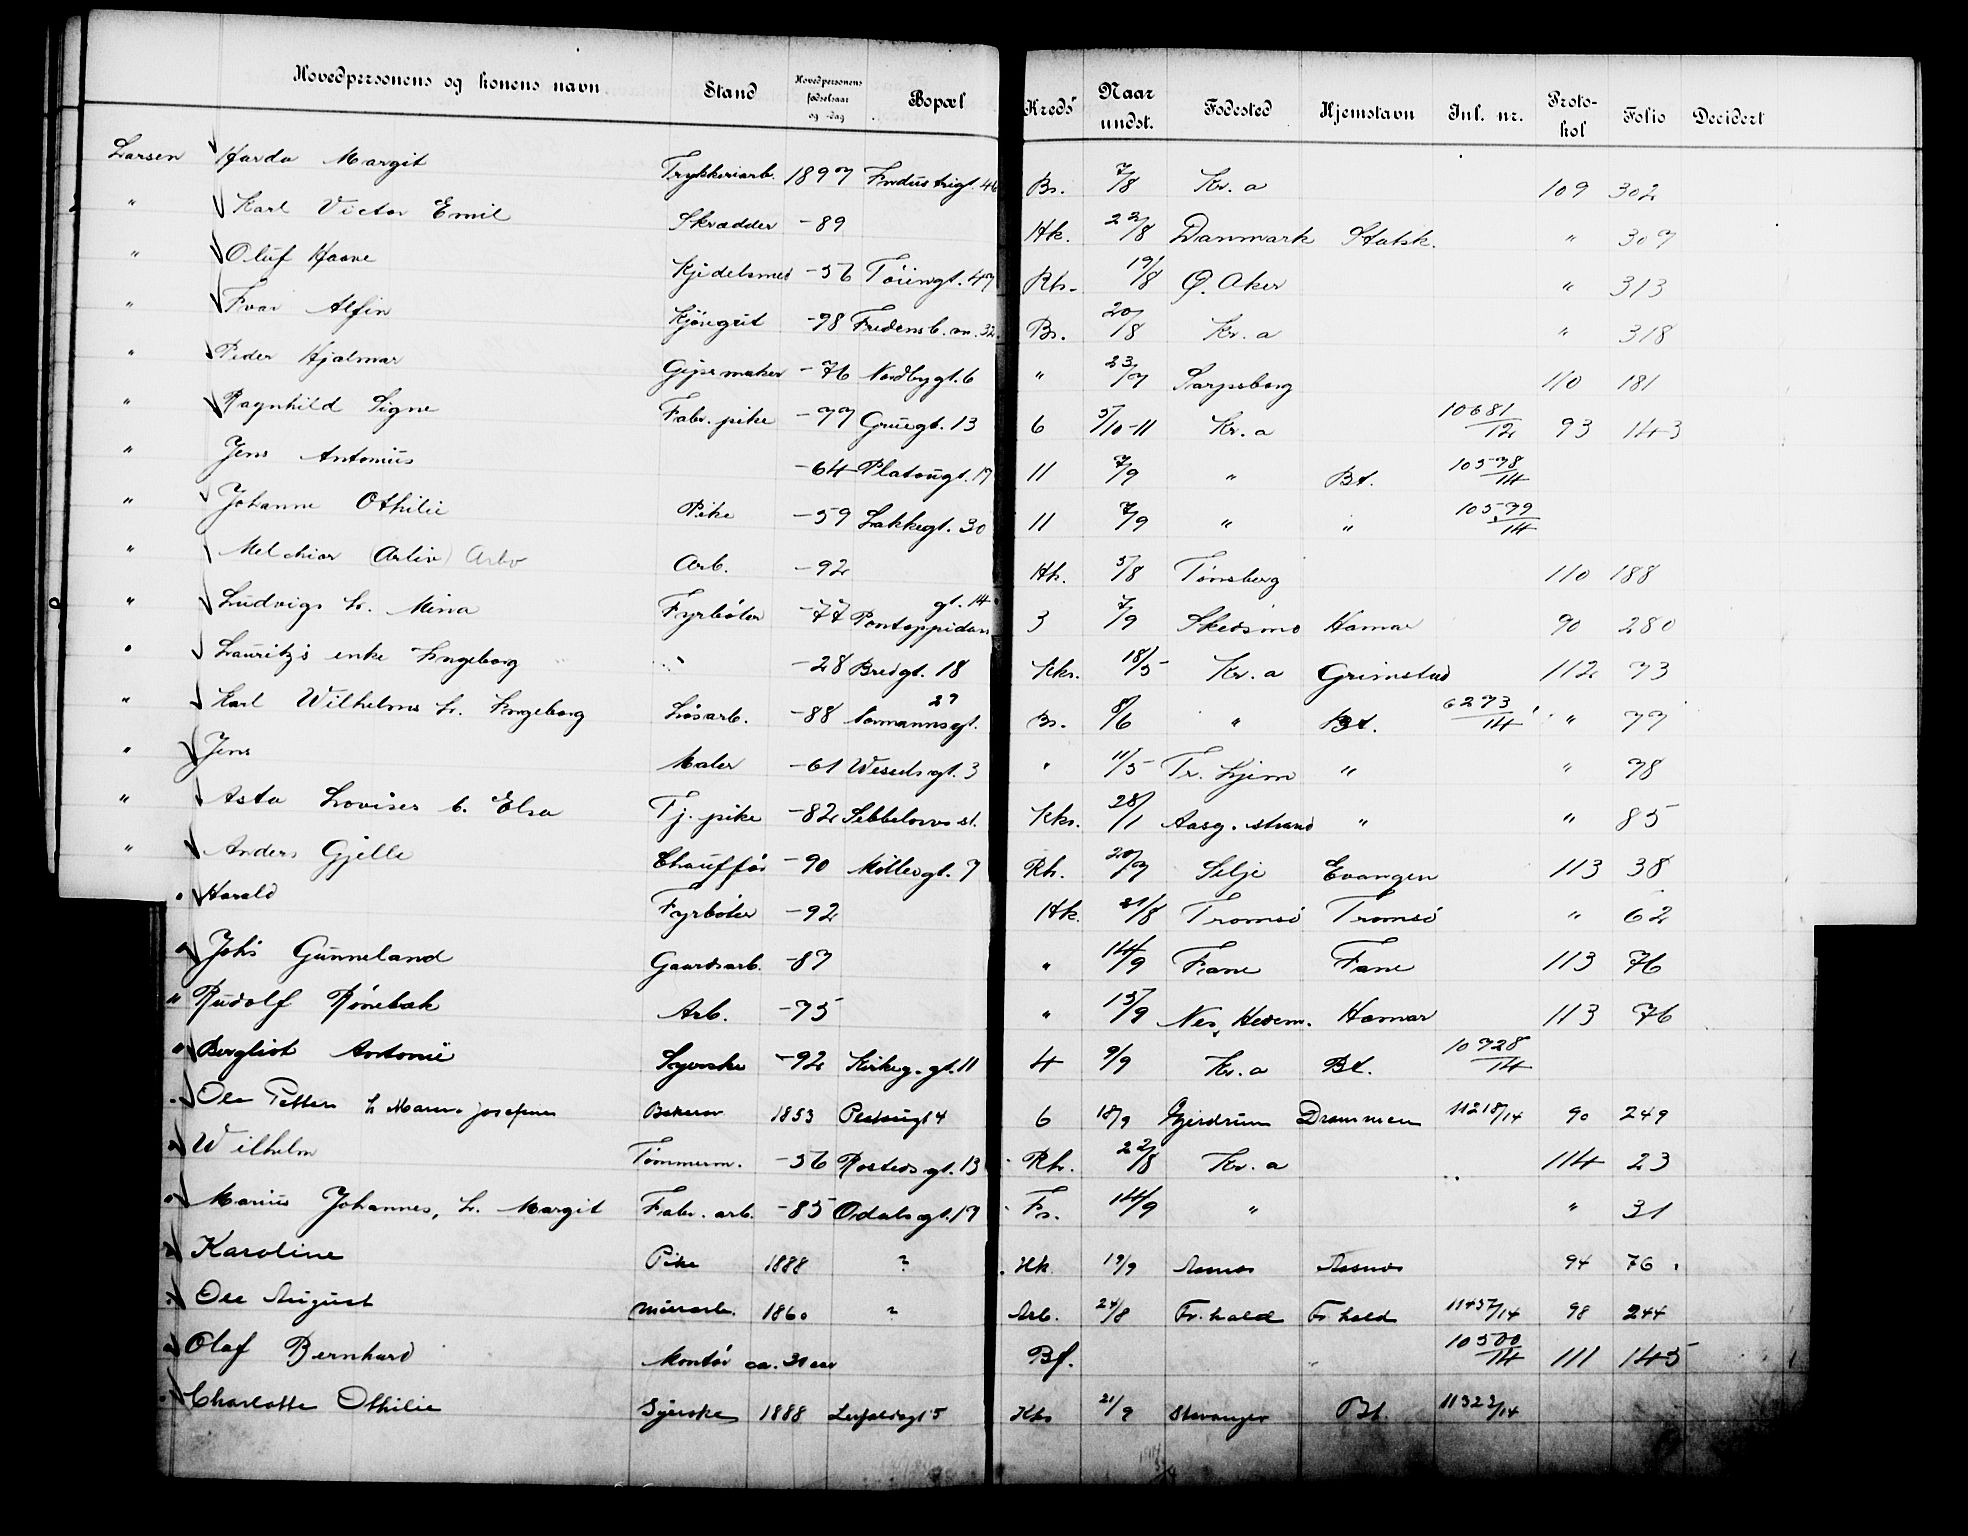 Hovedpersonens og konens navn Stand Hovedpersonens fødselsaar og -dag Bopæl Kreds Naar undst. Fødested Hjemstavn Inl. nr. Proto-kol Folio Decidert
Larsen Harda Margit Trykkeriarb. 1897 Industrigt. 46 Br. 7/8 Kr.a 109 302
" Karl Victor Emil Skrædder -89 Hk. 22/8 Danmark Statsk. " 307
" Oluf Haave Kjedelsmed -56 Tøiengt. 47 Rh. 19/8 Ø. Aker " 313
" Ivar Alfin Kjøregut -98 Fredensb.vn. 32 Br. 20/8 Kr.a " 318
" Peder Hjalmar Gipsmaker -76 Nordbygt. 6 " 23/7 Sarpsborg 110 181
" Ragnhild Signe Fabr. pike -97 Gruegt. 13 6 5/10-11 Kr.a 10681/12 93 143
" Jens Antonius -64 Platougt. 17 11 7/9 " Bt. 10578/14
" Johanne Othilie Pike -59 Lakkegt. 30 11 7/9 " " 10579/14
" Melchior (Arliv) Arbo Arb. -92 Hk. 5/8 Tønsberg 110 188
" Ludvigs h. Mina Fyrbøter -77 Pontoppidan gt. 14 3 7/9 Skedsmo Hamar 90 280
" Lauritz's enke Ingeborg -28 Bredgt. 18 Kks. 18/5 Kr.a Grimstad 112 73
" Karl Wilhelms h. Ingeborg Løsarb. -88 Normannsgt. 27 Br. 8/6 " Bt. 6273/14 " 77
" Jens Maler -61 Wesselsgt. 3 " 11/5 Tr.hjem " " 78
" Asta Lovises b. Elsa Tj. pike -82 Sebbelows st. Kks. 28/1 Aasg.strand " " 85
" Anders Gjelle Chauffør -90 Møllergt. 7 Rh. 20/7 Selje Evangen 113 38
" Harald Fyrbøter -92 Hk. 21/8 Tromsø Tromsø " 62
" Johs Gunneland Gaardsarb. -87 " 14/9 Fane Fane 113 76
" Rudolf Rønebak Arb. -75 " 15/9 Nes, Hedem. Hamar 113 76
" Bergliot Antonie Syerske -92 Kirkeg.gt. 11 4 9/9 Kr.a Bt. 10728/14
" Ole Petter h Maren Josefine 1853 6 18/9 Gjerdrum Drammen 11218/14 90 249
" Wilhelm Tømmerm. -56 Rostedsgt. 13 Rh. 22/8 Kr.a 114 23
" Marius Johannes, h. Margit Fabr. arb. -85 Odalsgt. 17 Fs. 14/9 " " 31
" Karoline Pike 1888 ? Hk 19/9 Aasnes Aasnes 94 76
" Ole August Murarb. 1860 ? Arb. 24/8 Fr.hald Fr.hald 11457/14 98 244
" Olaf Bernhard Montør ca. 30 aar Bf. 10500/14 111 145
" Charlotte Othilie Syerske 1888 Leirfaldsgt 5 Kks 21/9 Stavanger Bt. 11323/14